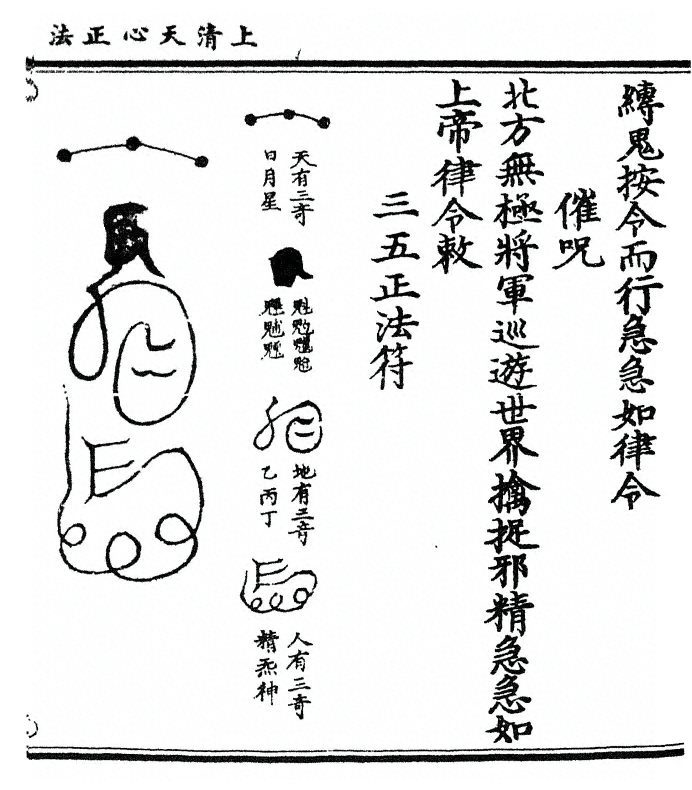 上清天心正法
縛鬼按令而行急急如律令
催呪
北方無極將軍巡遊世界擒捉邪精急急如
上帝律令敕
三五正法符
天有三奇
日月星
魁
地有三奇
乙丙丁
人有三奇
精炁神